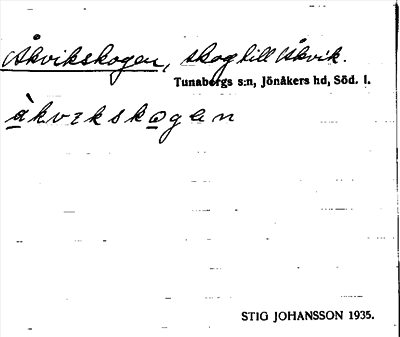 Åkvikskogen, skog till Åkvik.
Tunabergs s:n, Jönåkers hd, Söd. l.
åkvikskogen
STIG JOHANSSON 1935.